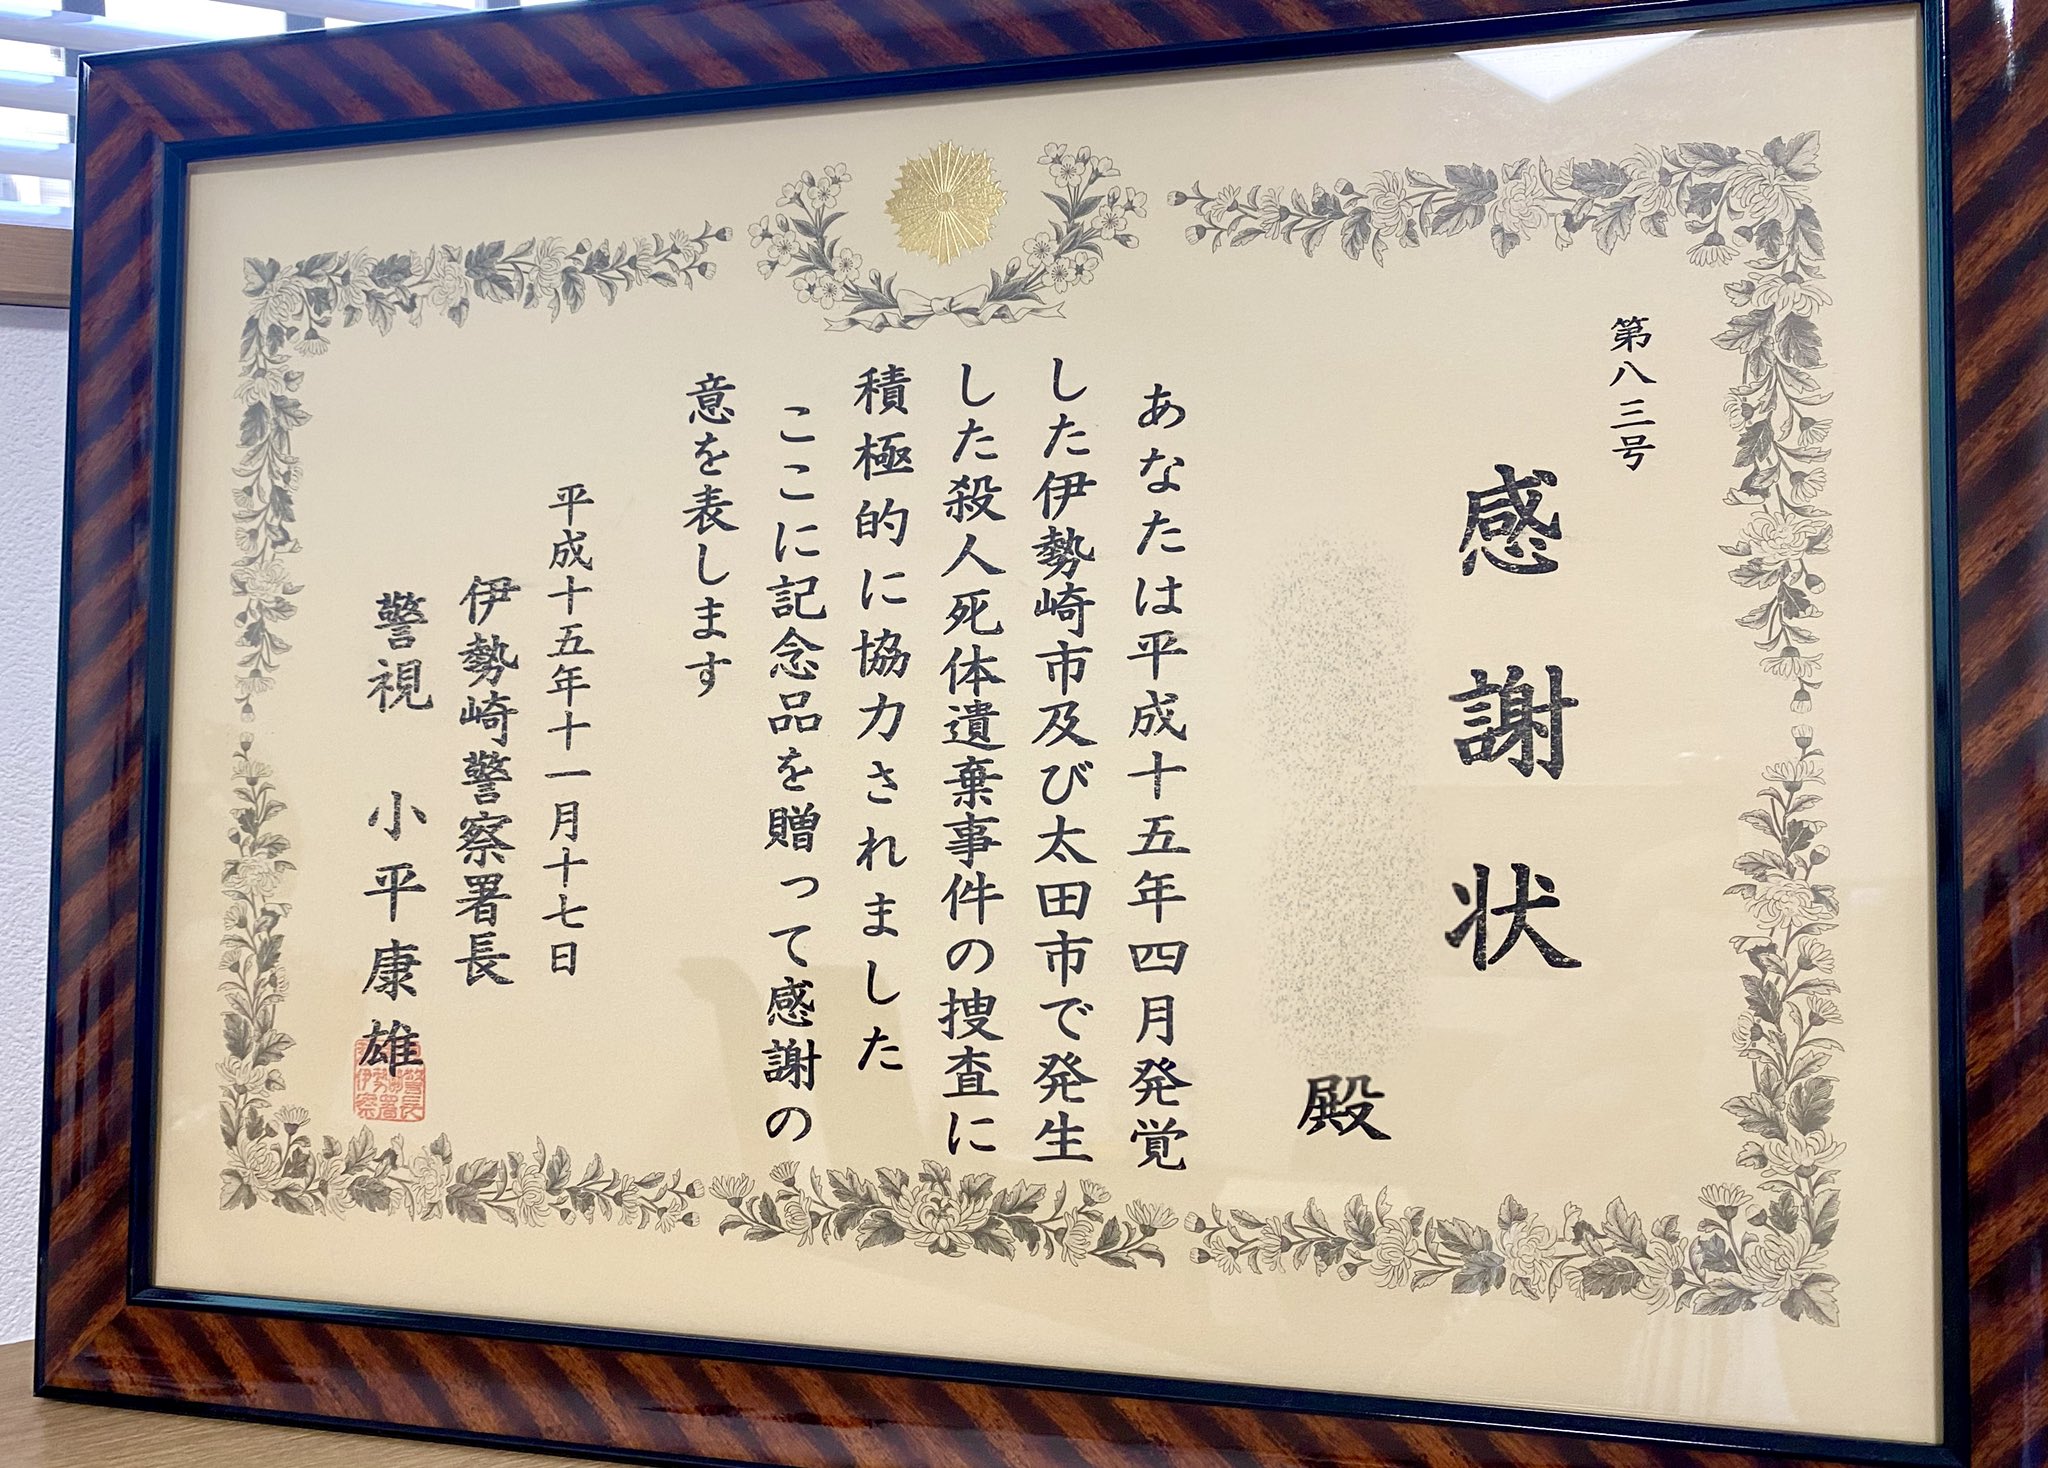 第八三号
感謝状
殿
あなたは平成十五年四月発覚
した伊勢崎市及び太田市で発生
した殺人死体遺棄事件の捜査に
積極的に協力されました
ここに記念品を贈って感謝の
意を表します
平成十五年十一月十七日
伊勢崎警察署長
警視 小平康雄